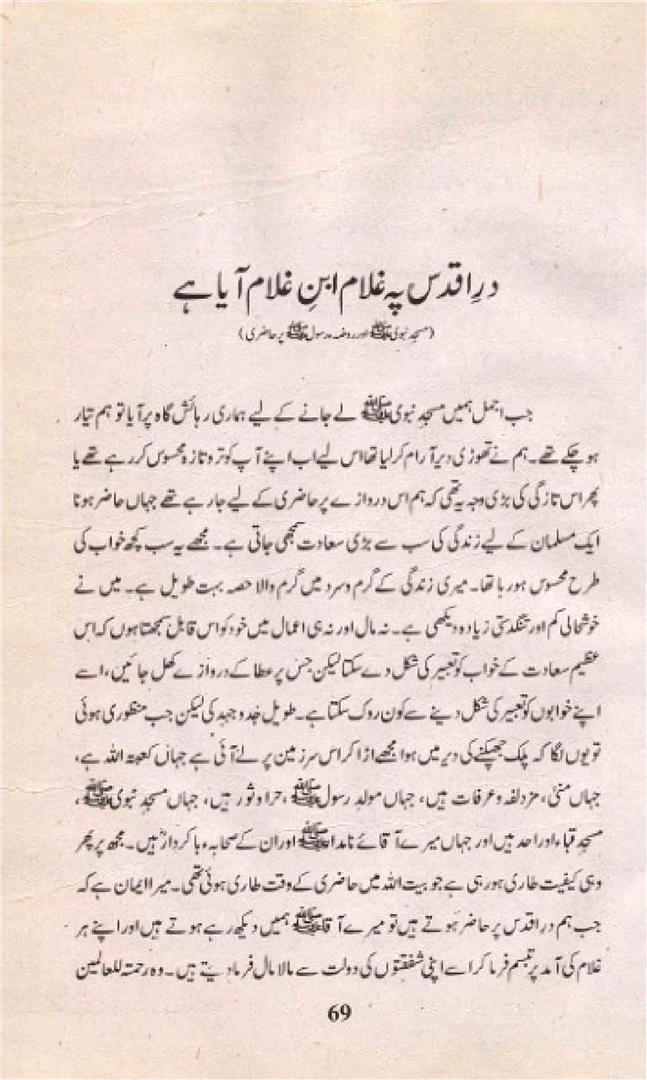 درِ اقدس پہ غلام ابنِ غلام آیا ہے
(مسجد نبوی ﷺ اور روضہ رسول ﷺ پر حاضری)
جب اجمل ہمیں مسجد نبوی ﷺ لے جانے کے لیے ہماری رہائش گاہ پر آیا تو ہم تیار
ہو چکے تھے۔ ہم نے تھوڑی دیر آرام کر لیا تھا اس لیے اب اپنے آپ کو تر و تازہ محسوس کر رہے تھے یا
پھر اس تازگی کی بڑی وجہ یہ تھی کہ ہم اس دروازے پر حاضری کے لیے جا رہے تھے جہاں حاضر ہونا
ایک مسلمان کے لیے زندگی کی سب سے بڑی سعادت سمجھی جاتی ہے۔ مجھے یہ سب کچھ خواب کی
طرح محسوس ہو رہا تھا۔ میری زندگی کے گرم و سرد میں گرم والا حصہ بہت طویل ہے۔ میں نے
خوشحالی کم اور تنگدستی زیادہ دیکھی ہے۔ نہ مال اور نہ ہی اعمال میں خود کو اس قابل سمجھتا ہوں کہ اس
عظیم سعادت کے خواب کو تعبیر کی شکل دے سکتا لیکن جس پر عطا کے دروازے کھل جائیں، اسے
اپنے خوابوں کو تعبیر کی شکل دینے سے کون روک سکتا ہے۔ طویل جدوجہد کی لیکن جب منظوری ہوئی
تو یوں لگا کہ پلک جھپکنے کی دیر میں ہوا مجھے اڑا کر اس سرزمین پر لے آئی ہے جہاں کعبۃ اللہ ہے،
جہاں منیٰ، مزدلفہ و عرفات ہیں، جہاں مولدِ رسول ﷺ، حرا و ثور ہیں، جہاں مسجد نبوی ﷺ،
مسجد قباء اور احد ہیں اور جہاں میرے آقائے نامدار ﷺ اور ان کے صحابہ باکردارؓ ہیں۔ مجھ پر پھر
وہی کیفیت طاری ہو رہی ہے جو بیت اللہ میں حاضری کے وقت طاری ہوئی تھی۔ میرا ایمان ہے کہ
جب ہم درِ اقدس پر حاضر ہوتے ہیں تو میرے آقا ﷺ ہمیں دیکھ رہے ہوتے ہیں اور اپنے ہر
غلام کی آمد پر تبسم فرما کر اسے اپنی شفقتوں کی دولت سے مالا مال فرما دیتے ہیں۔ وہ رحمۃ للعالمین
69